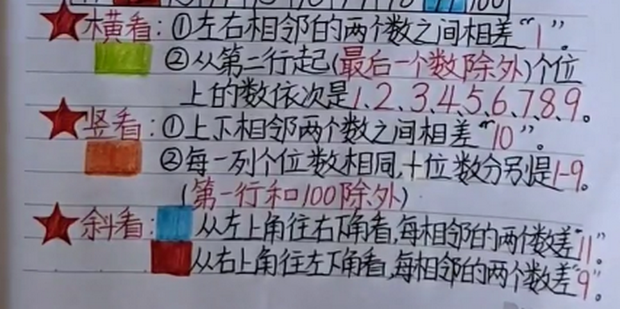 100
横看：①左右相邻的两个数之间相差“1”。
②从第二行起(最后一个数除外)个位
上的数依次是1、2、3、4、5、6、7、8、9。
竖看：①上下相邻两个数之间相差“10”。
②每一列个位数相同,十位数分别是1-9。
(第一行和100除外)
斜看：从左上角往右下角看,每相邻的两个数差“11”。
从右上角往左下角看,每相邻的两个数差“9”。